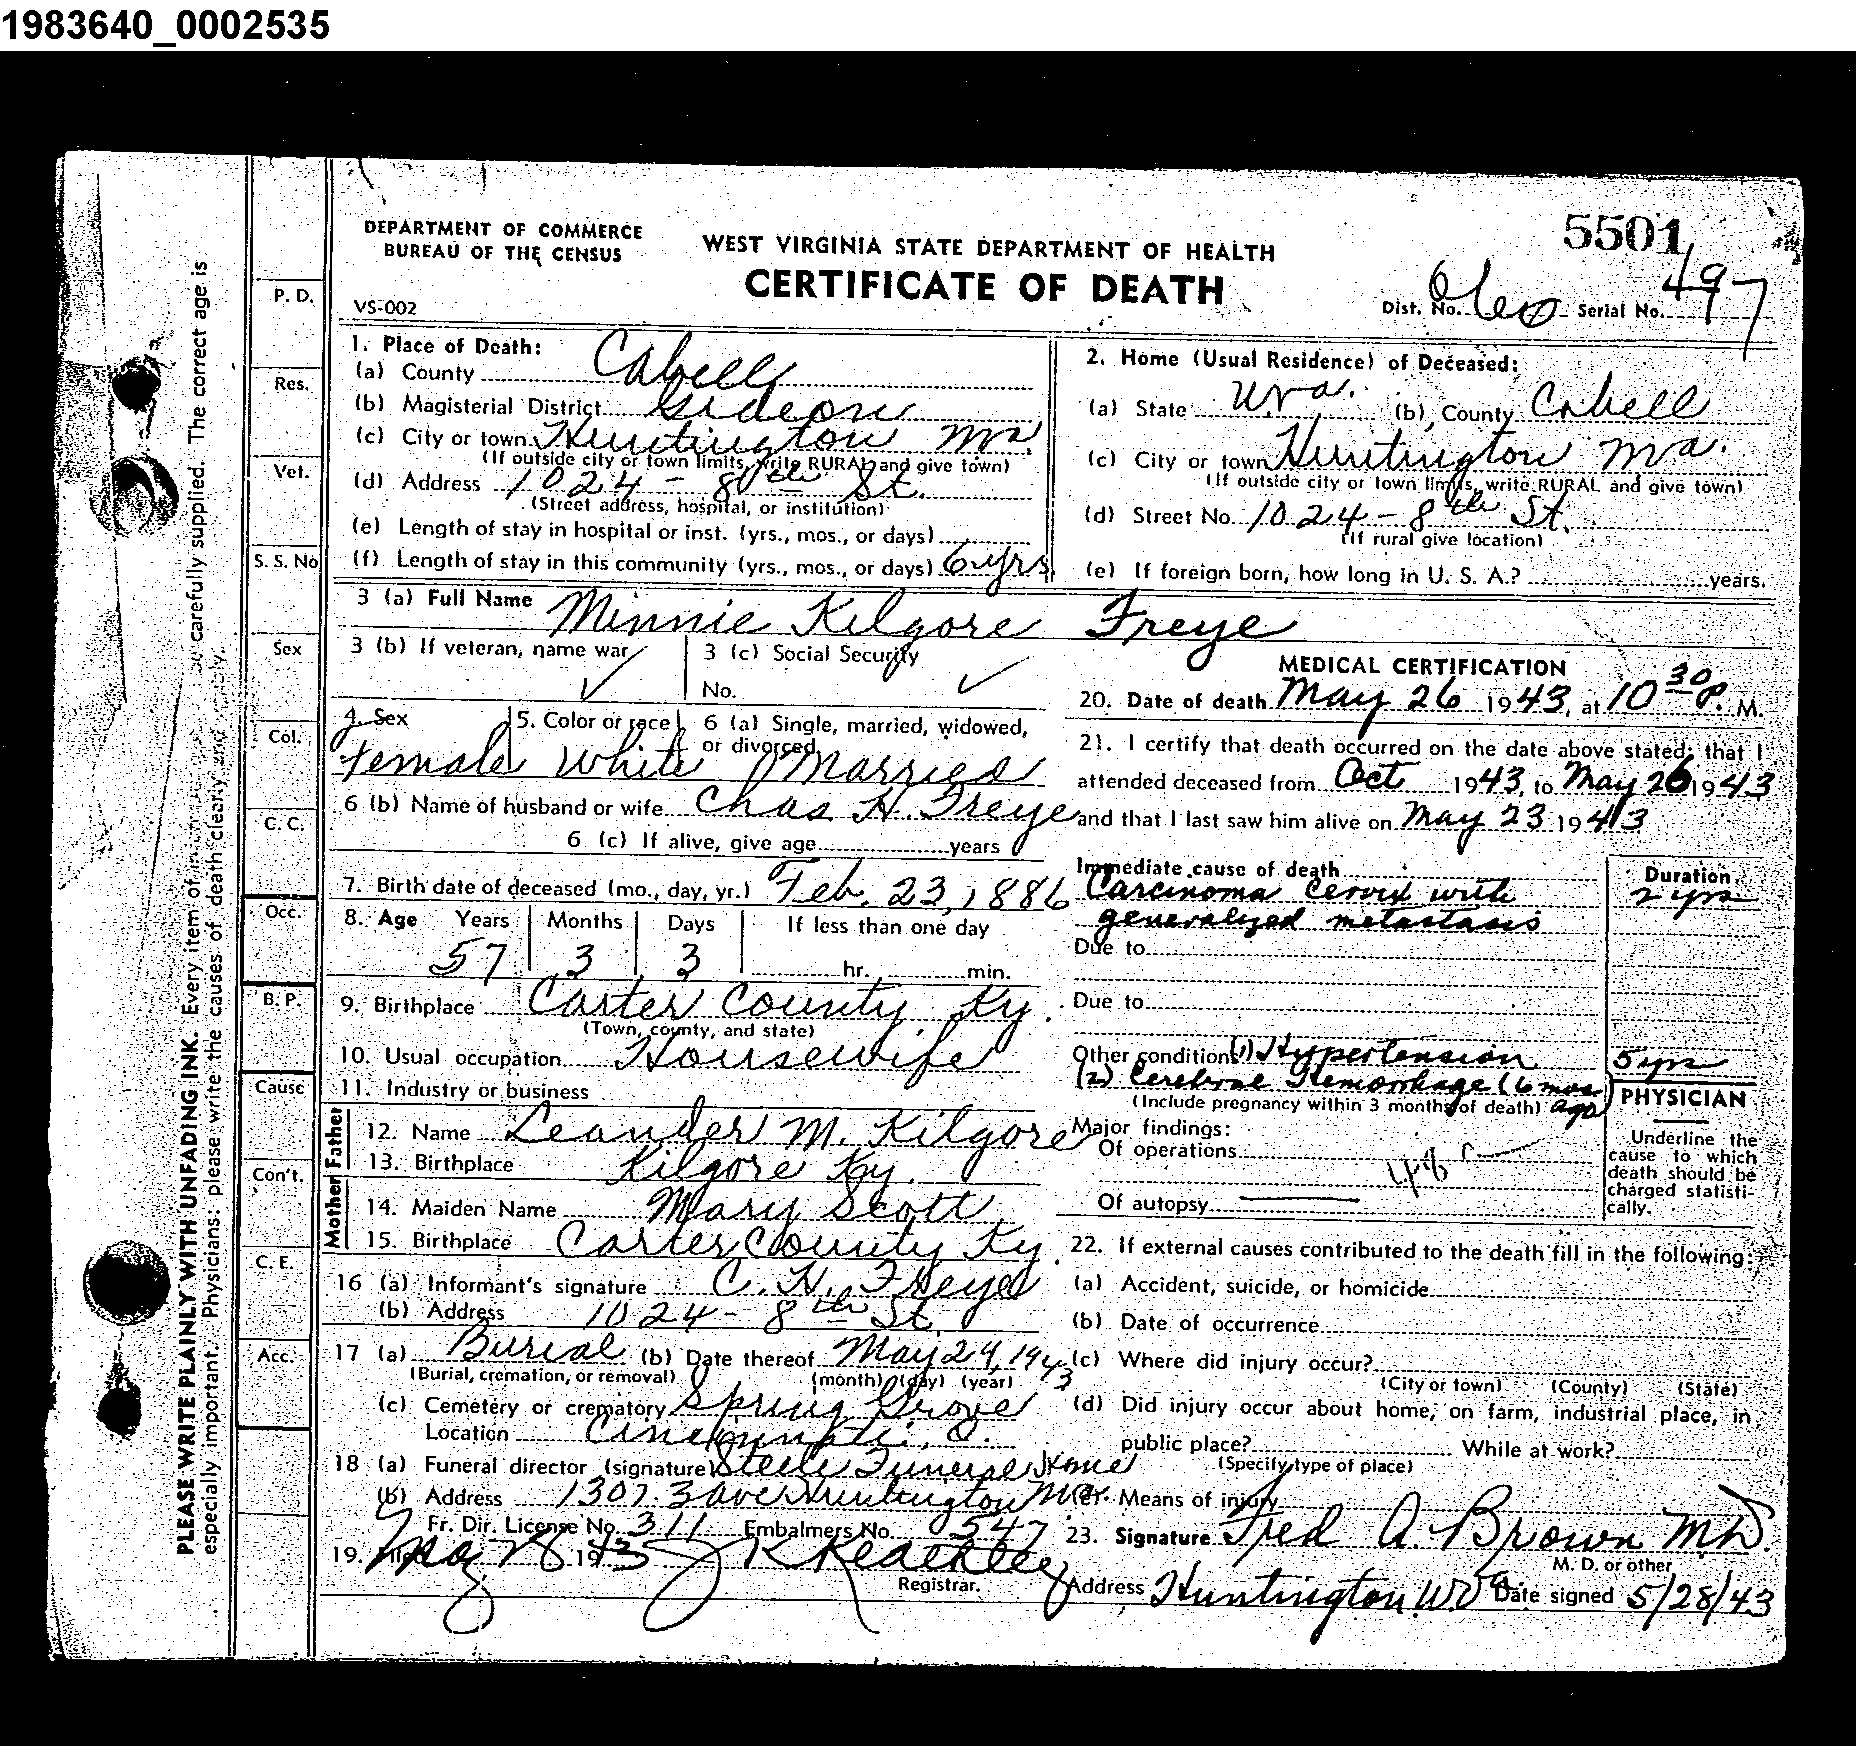 1983640_0002535
DEPARTMENT OF COMMERCE
BUREAU OF THE CENSUS
VS-002
WEST VIRGINIA STATE DEPARTMENT OF HEALTH
CERTIFICATE OF DEATH
5501
Dist. No. Serial No. 497
PLEASE WRITE PLAINLY WITH UNFADING INK. Every item of carefully supplied. The correct age is
especially important. Physicians: please write the causes of death clearly and
P. D.
Res.
Vet.
S. S. No
Sex
Col.
C. C.
Occ.
B. P.
Cause
Con't.
C. E.
Acc.
1. Place of Death:
(a) County Cabell
(b) Magisterial District Gideon
(c) City or town Huntington Wva.
(If outside city or town limits, write RURAL and give town)
(d) Address 1024 - 8th St.
(Street address, hospital, or institution)
(e) Length of stay in hospital or inst. (yrs., mos., or days)
(f) Length of stay in this community (yrs., mos., or days) 6 yrs.
2. Home (Usual Residence) of Deceased:
(a) State Wva. (b) County Cabell
(c) City or town Huntington Wva.
(If outside city or town limits, write RURAL and give town)
(d) Street No. 1024 - 8th St.
(If rural give location)
(e) If foreign born, how long in U. S. A.? years.
3 (a) Full Name Minnie Kilgore Freye
3 (b) If veteran, name war ✓
3 (c) Social Security
No. ✓
4. Sex 5. Color or race 6 (a) Single, married, widowed,
or divorced
Female White Married
6 (b) Name of husband or wife Chas H. Freye
6 (c) If alive, give age years
7. Birth date of deceased (mo., day, yr.) Feb. 23, 1886
8. Age Years Months Days If less than one day
57 3 3 hr. min.
9. Birthplace Carter County, Ky.
(Town, county, and state)
10. Usual occupation Housewife
11. Industry or business
Father
12. Name Leander M. Kilgore
13. Birthplace Kilgore Ky.
Mother
14. Maiden Name Mary Scott
15. Birthplace Carter County Ky.
16 (a) Informant's signature C. H. Freye
(b) Address 1024 - 8th St.
17 (a) Burial (b) Date thereof May 29, 1943
(Burial, cremation, or removal) (month) (day) (year)
(c) Cemetery or crematory Spring Grove
Location Cincinnati, O.
18 (a) Funeral director (signature) Steele Funeral Home
(b) Address 1307 3 ave Huntington Wva.
Fr. Dir. License No. 311 Embalmers No. 547
19. Filed May 28 1943
Registrar.
MEDICAL CERTIFICATION
20. Date of death May 26 1943, at 10 30 P. M.
21. I certify that death occurred on the date above stated; that I
attended deceased from Oct 1943, to May 26 1943
and that I last saw him alive on May 23 1943
Immediate cause of death Duration
Carcinoma Cervix with 2 yrs
generalized metastasis
Due to
Due to
Other conditions (1) Hypertension 5 yrs
(2) Cerebral Hemorrhage (6 mos
(Include pregnancy within 3 months of death) ago)
PHYSICIAN
Underline the
cause to which
death should be
charged statisti-
cally.
Major findings:
Of operations
48
Of autopsy
22. If external causes contributed to the death fill in the following:
(a) Accident, suicide, or homicide
(b) Date of occurrence
(c) Where did injury occur?
(City or town) (County) (State)
(d) Did injury occur about home, on farm, industrial place, in
public place? While at work?
(Specify type of place)
(e) Means of injury
23. Signature Fred A. Brown M.D.
M. D. or other
Address Huntington, W.Va. Date signed 5/28/43